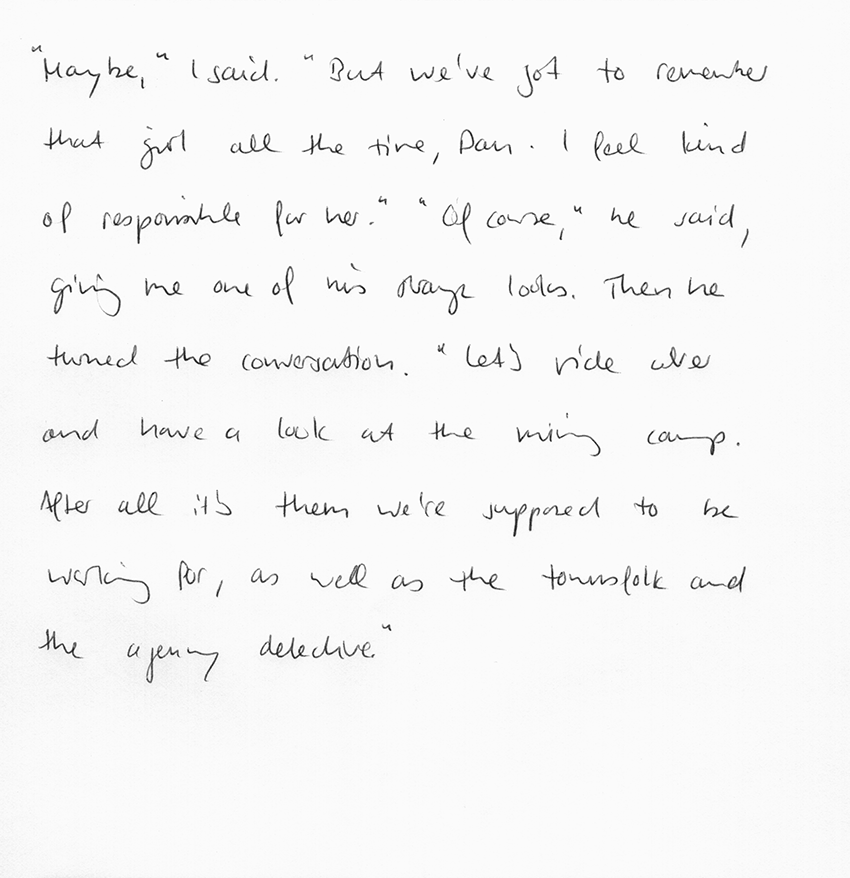 "Maybe," I said. "But we've got to remember
that girl all the time, Dan. I feel kind
of responsible for her." "Of course," he said,
giving me one of his strange looks. Then he
turned the conversation. "Let's ride over
and have a look at the mining camp.
After all it's them we're supposed to be
working for, as well as the townsfolk and
the agency detective."